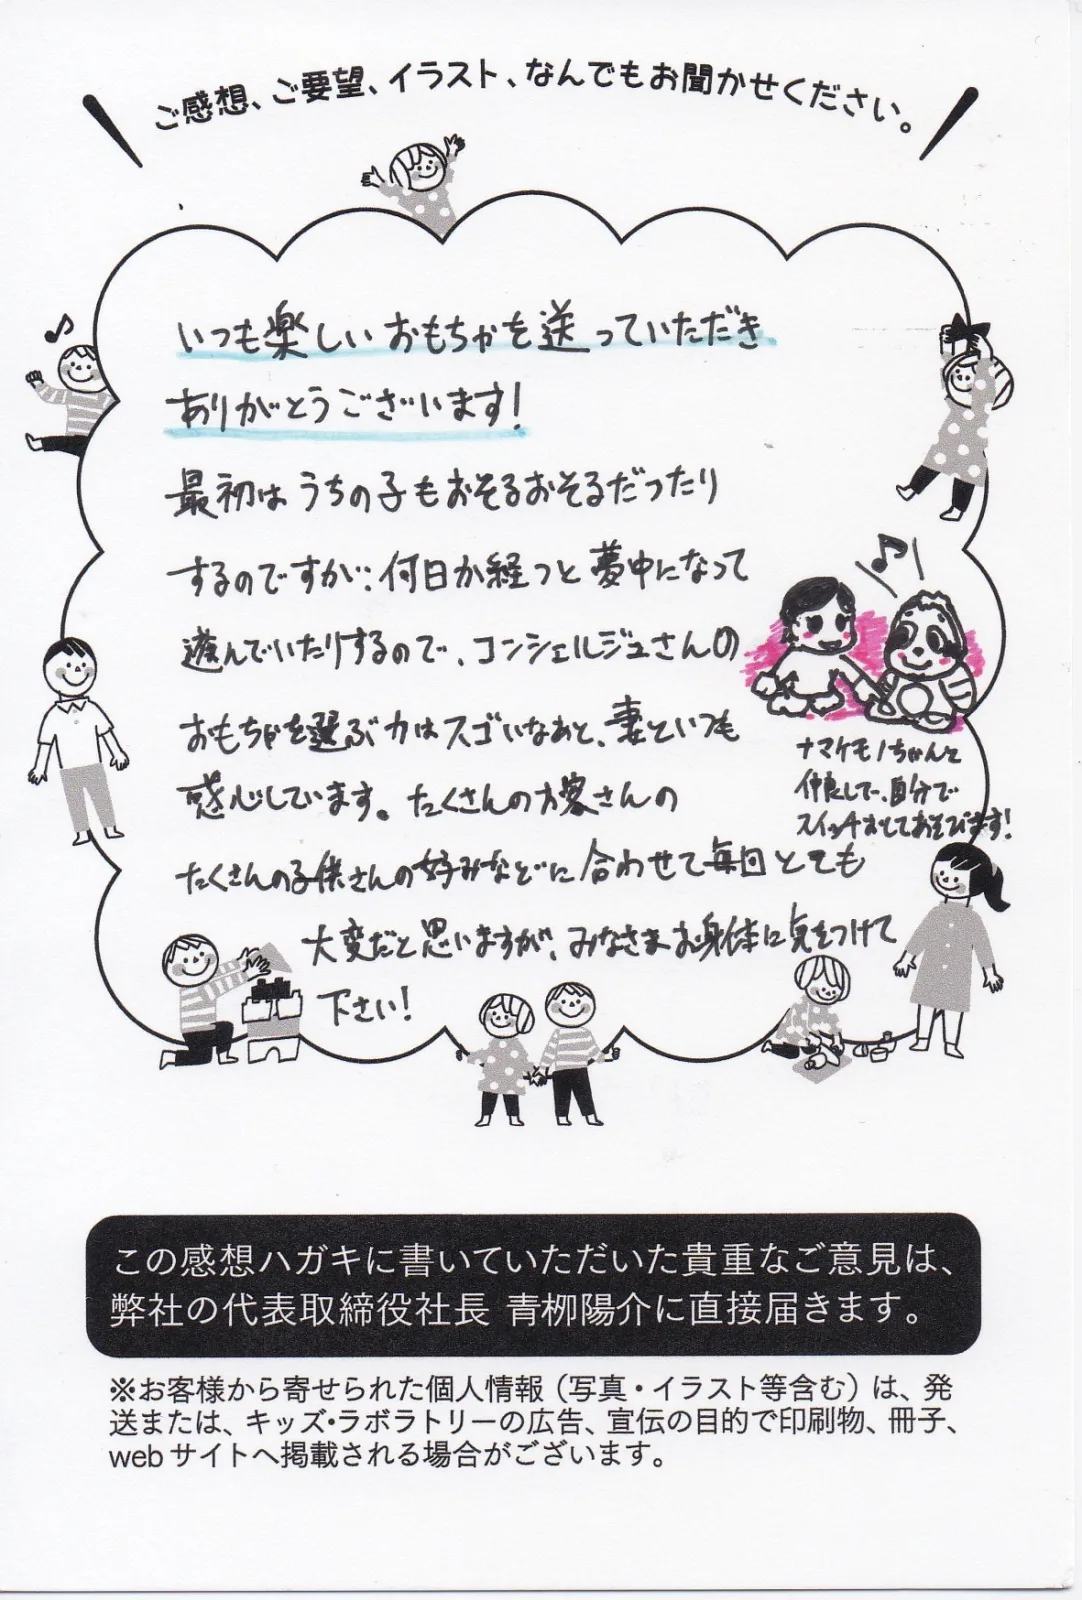 ご感想、ご要望、イラスト、なんでもお聞かせください。
いつも楽しいおもちゃを送っていただき
ありがとうございます!
最初はうちの子もおそるおそるだったり
するのですが、何日か経つと夢中になって
遊んでいたりするので、コンシェルジュさんの
おもちゃを選ぶ力はスゴいなあと、妻といつも
感心しています。たくさんのお客さんの
たくさんの子供さんの好みなどに合わせて毎回とても
大変だと思いますが、みなさまお身体に気をつけて
下さい!
ナマケモノちゃんと
仲良しで、自分で
スイッチおしてあそびます!
この感想ハガキに書いていただいた貴重なご意見は、
弊社の代表取締役社長 青栁陽介に直接届きます。
※お客様から寄せられた個人情報(写真・イラスト等含む)は、発
送または、キッズ・ラボラトリーの広告、宣伝の目的で印刷物、冊子、
webサイトへ掲載される場合がございます。